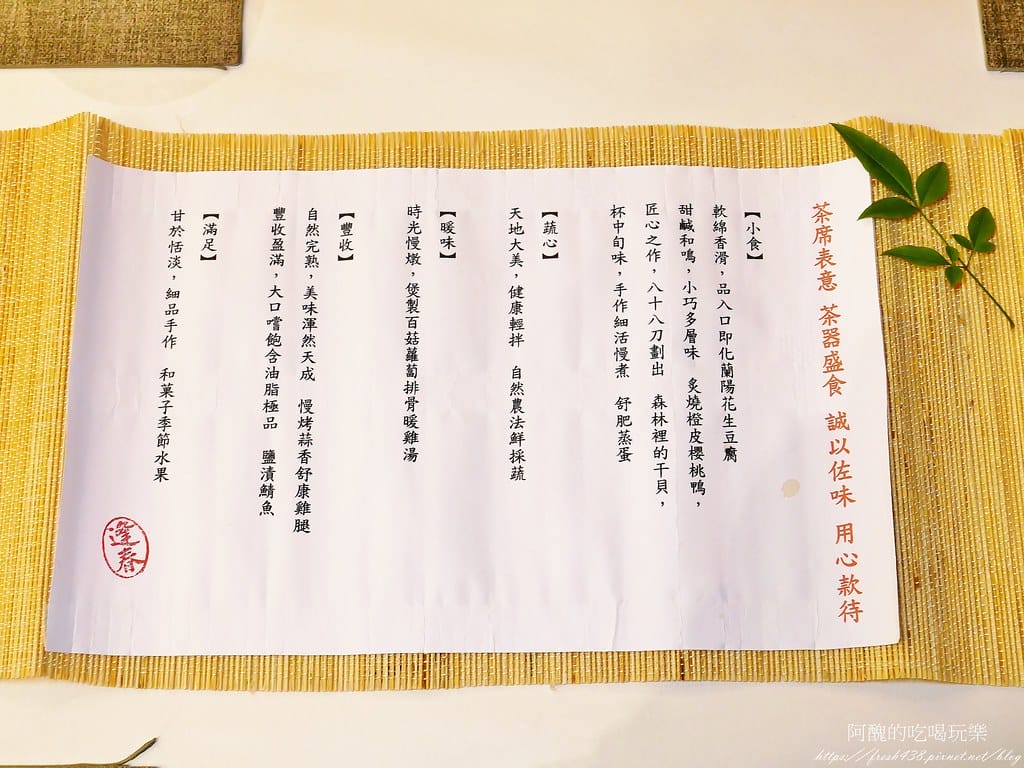 茶席表意 茶器盛食 誠以佐味 用心款待
【小食】
軟綿香滑，品入口即化蘭陽花生豆腐
甜鹹和鳴，小巧多層味 炙燒橙皮櫻桃鴨，
匠心之作，八十八刀劃出 森林裡的干貝，
杯中旬味，手作細活慢煮 舒肥蒸蛋
【蔬心】
天地大美，健康輕拌 自然農法鮮採蔬
【暖味】
時光慢燉，煲製百菇蘿蔔排骨暖雞湯
【豐收】
自然完熟，美味渾然天成 慢烤蒜香舒康雞腿
豐收盈滿，大口嚐飽含油脂極品 鹽漬鯖魚
【滿足】
甘於恬淡，細品手作 和菓子季節水果
逢春
阿醜的吃喝玩樂
https://fresh438.pixnet.net/blog